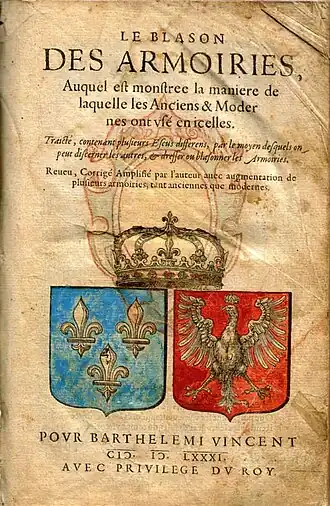 LE BLASON
DES ARMOIRIES,
Auquel est monstree la maniere de
laquelle les Anciens & Moder
nes ont vsé en icelles.
Traicté, contenant plusieurs Escus differens, par le moyen desquels on
peut discerner les autres, & dresser ou blasonner les Armoiries.
Reueu, Corrigé Amplifié par l'auteur auec augmentation de
plusieurs armoiries, tant anciennes que modernes.
POVR BARTHELEMI VINCENT
CIↃ. IↃ. LXXXI.
AVEC PRIVILEGE DV ROY.